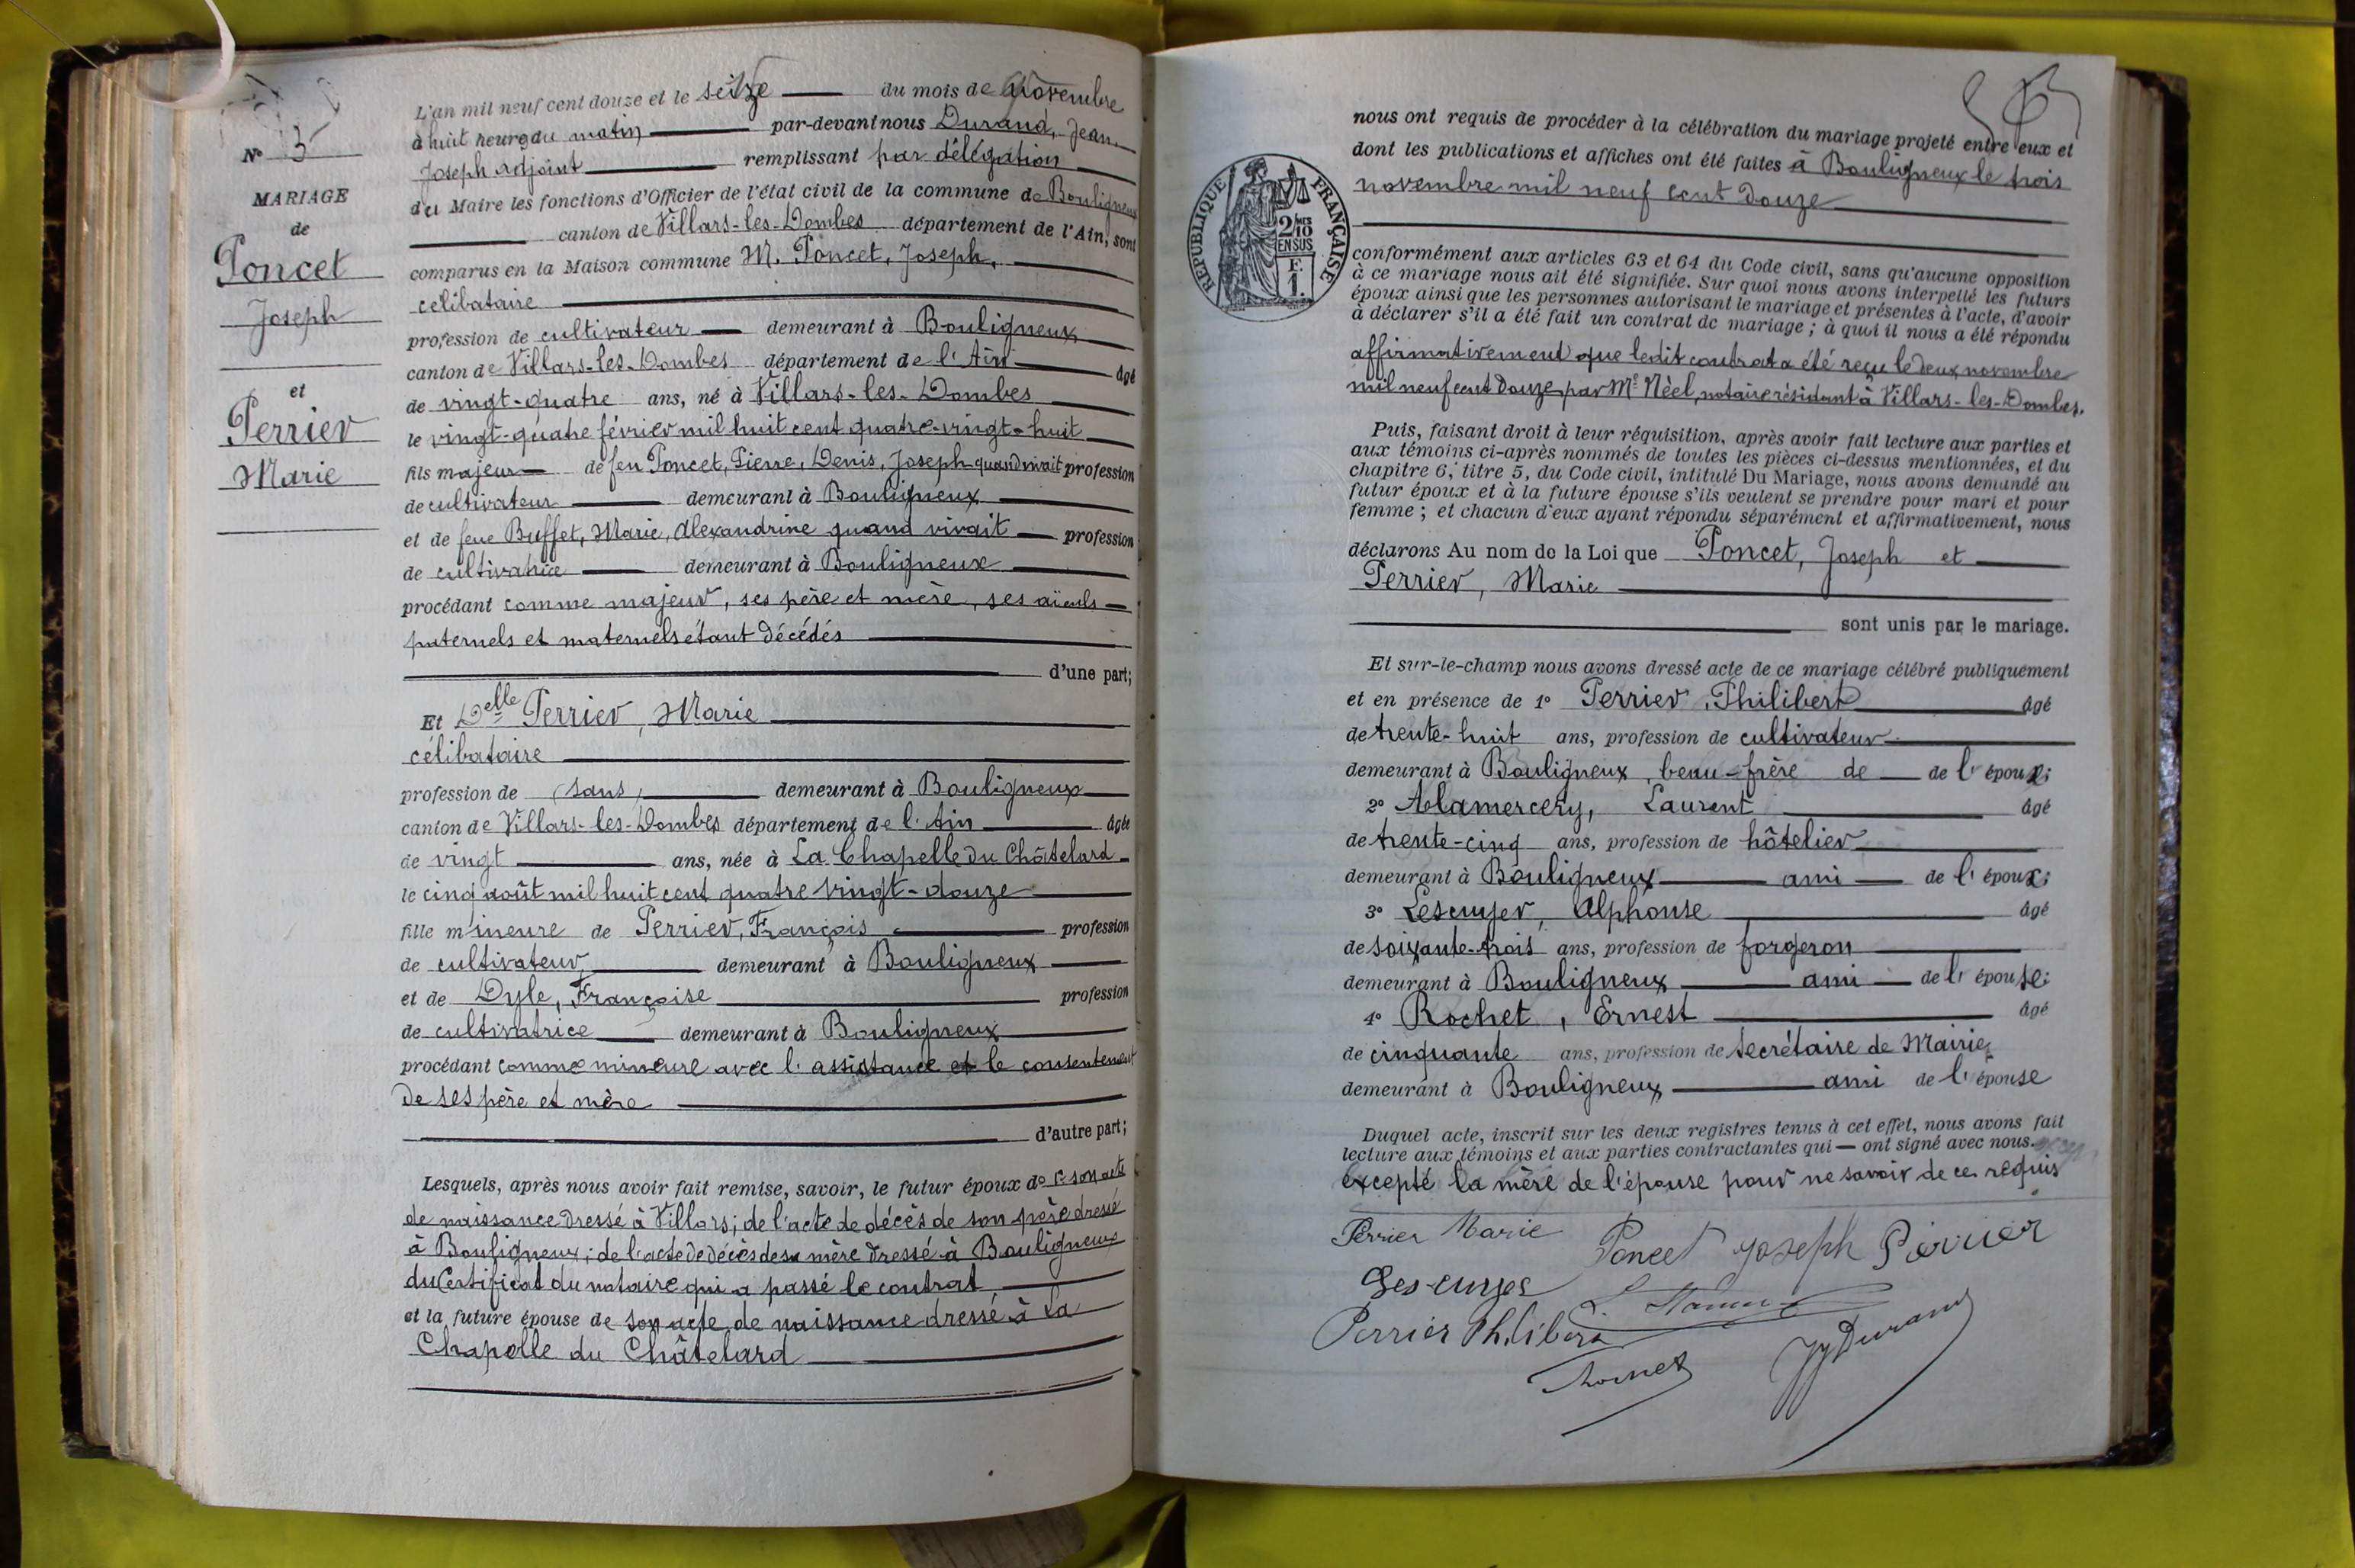 L'an mil neuf cent douze et le seize du mois de Novembre
à huit heures du matin par-devant nous Durand, Jean
Joseph adjoint remplissant par délégation
du Maire les fonctions d'Officier de l'état civil de la commune de Bouligneux
canton de Villars-les-Dombes département de l'Ain, sont
comparus en la Maison commune M. Poncet, Joseph,
celibataire
profession de cultivateur demeurant à Bouligneux
canton de Villars-les-Dombes département de l'Ain âgé
de vingt-quatre ans, né à Villars-les-Dombes
le vingt-quatre février mil huit cent quatre-vingt-huit
fils majeur de feu Poncet, Pierre, Denis, Joseph quand vivait profession
de cultivateur demeurant à Bouligneux
et de feue Buffet, Marie, Alexandrine quand vivait profession
de cultivatrice demeurant à Bouligneux
procédant comme majeur, ses père et mère, ses aïeuls
paternels et maternels étant décédés
d'une part;
Et Delle Perrier, Marie
célibataire
profession de (sans) demeurant à Bouligneux
canton de Villars-les-Dombes département de l'Ain âgée
de vingt ans, née à La Chapelle du Châtelard
le cinq août mil huit cent quatre vingt-douze
fille mineure de Perrier, François profession
de cultivateur demeurant à Bouligneux
et de Dyle, Françoise profession
de cultivatrice demeurant à Bouligneux
procédant comme mineure avec l'assistance et le consentement
de ses père et mère
d'autre part;
Lesquels, après nous avoir fait remise, savoir, le futur époux de son acte
de naissance dressé à Villars; de l'acte de décès de son père dressé
à Bouligneux; de l'acte de décès de sa mère dressé à Bouligneux
du Certificat du notaire qui a passé le contrat
et la future épouse de son acte de naissance dressé à La
Chapelle du Châtelard
N° 5
MARIAGE
de
Poncet
Joseph
et
Perrier
Marie
nous ont requis de procéder à la célébration du mariage projeté entre eux et
dont les publications et affiches ont été faites à Bouligneux le trois
novembre mil neuf cent douze
REPUBLIQUE FRANÇAISE
2/10 MES
EN SUS
F.
1.
conformément aux articles 63 et 64 du Code civil, sans qu'aucune opposition
à ce mariage nous ait été signifiée. Sur quoi nous avons interpellé les futurs
époux ainsi que les personnes autorisant le mariage et présentes à l'acte, d'avoir
à déclarer s'il a été fait un contrat de mariage; à quoi il nous a été répondu
affirmativement que ledit contrat a été reçu le deux novembre
mil neuf cent douze par Me Néel, notaire résidant à Villars-les-Dombes.
Puis, faisant droit à leur réquisition, après avoir fait lecture aux parties et
aux témoins ci-après nommés de toutes les pièces ci-dessus mentionnées, et du
chapitre 6, titre 5, du Code civil, intitulé Du Mariage, nous avons demandé au
futur époux et à la future épouse s'ils veulent se prendre pour mari et pour
femme; et chacun d'eux ayant répondu séparément et affirmativement, nous
déclarons Au nom de la Loi que Poncet, Joseph et
Perrier, Marie
sont unis par le mariage.
Et sur-le-champ nous avons dressé acte de ce mariage célébré publiquement
et en présence de 1° Perrier, Philibert âgé
de trente-huit ans, profession de cultivateur
demeurant à Bouligneux, beau-frère de de l'époux;
2° Alamercery, Laurent âgé
de trente-cinq ans, profession de hôtelier
demeurant à Bouligneux ami de l'époux;
3° Lescuyer, Alphonse âgé
de soixante-trois ans, profession de forgeron
demeurant à Bouligneux ami de l'épouse;
4° Rochet, Ernest âgé
de cinquante ans, profession de secrétaire de Mairie
demeurant à Bouligneux ami de l'épouse
Duquel acte, inscrit sur les deux registres tenus à cet effet, nous avons fait
lecture aux témoins et aux parties contractantes qui ont signé avec nous.
excepté la mère de l'épouse pour ne savoir de ce requis
Perrier Marie Poncet Joseph Périer
Lescuyer
Perrier Philibert
JJ Durand